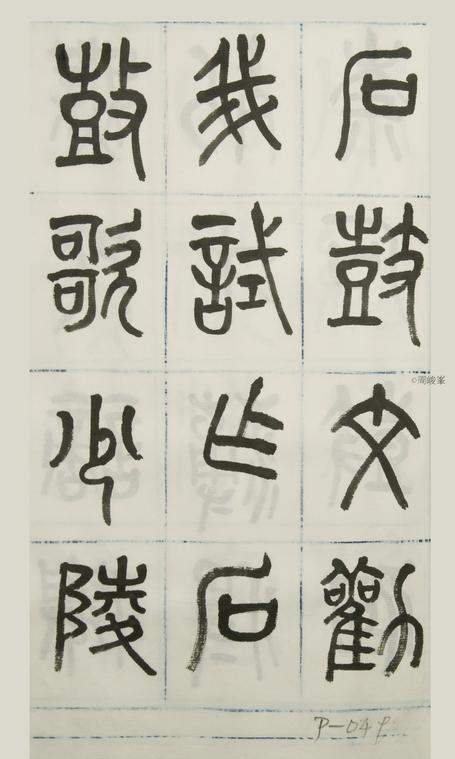 石鼓文勸
我試作石
鼓歌少陵
©周峻峯
P-04